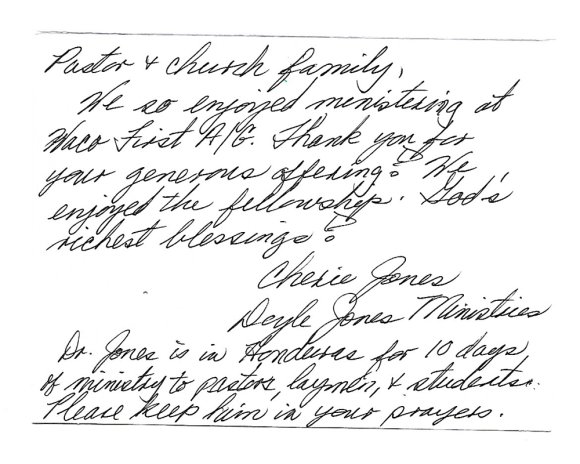 Pastor & church family,
We so enjoyed ministering at
Waco First A/G. Thank you for
your generous offering! We
enjoyed the fellowship. God's
richest blessings!
Cherie Jones
Doyle Jones Ministries
Dr. Jones is in Honduras for 10 days
of ministry to pastors, laymen, & students.
Please keep him in your prayers.